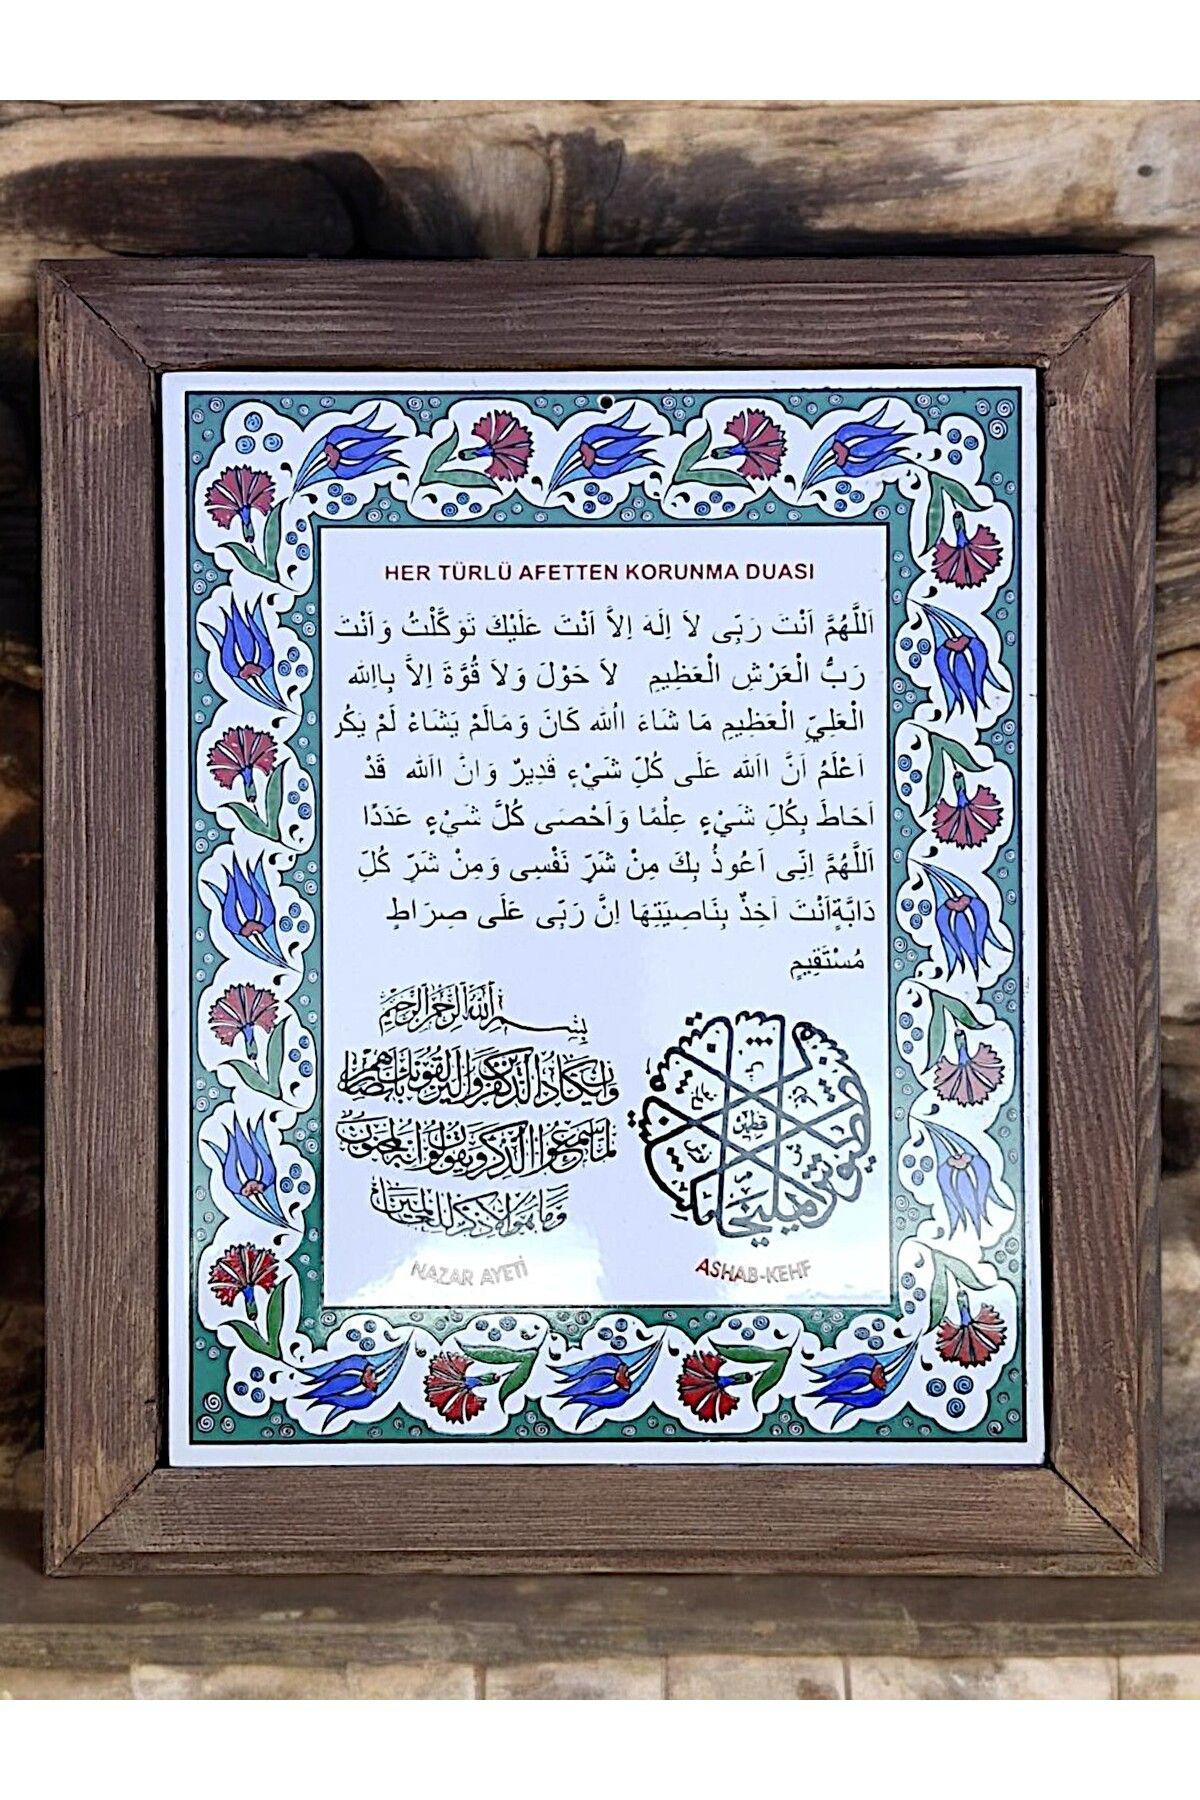 HER TÜRLÜ AFETTEN KORUNMA DUASI
اَللَّهُمَّ اَنْتَ رَبِّى لاَ اِلَهَ اِلاَّ اَنْتَ عَلَيْكَ تَوَكَّلْتُ وَاَنْتَ
رَبُّ الْعَرْشِ الْعَظِيمِ لاَ حَوْلَ وَلاَ قُوَّةَ اِلاَّ بِاللهِ
الْعَلِيِّ الْعَظِيمِ مَا شَاءَ اللهُ كَانَ وَمَالَمْ يَشَاءْ لَمْ يَكُر
اَعْلَمُ اَنَّ اللهَ عَلَى كُلِّ شَيْءٍ قَدِيرٌ وَاِنَّ اللهَ قَدْ
اَحَاطَ بِكُلِّ شَيْءٍ عِلْمًا وَاَحْصَى كُلَّ شَيْءٍ عَدَدًا
اَللَّهُمَّ اِنِّى اَعُوذُ بِكَ مِنْ شَرِّ نَفْسِى وَمِنْ شَرِّ كُلِّ
دَابَّةٍاَنْتَ آخِذٌ بِنَاصِيَتِهَا اِنَّ رَبِّى عَلَى صِرَاطٍ
مُسْتَقِيمٍ
بِسْمِ اللَّهِ الرَّحْمَنِ الرَّحِيمِ
وَاِنْ يَكَادُ الَّذِينَ كَفَرُوا لَيُزْلِقُونَكَ بِاَبْصَارِهِمْ
لَمَّا سَمِعُوا الذِّكْرَ وَيَقُولُونَ اِنَّهُ لَمَجْنُونٌ
وَمَا هُوَ اِلَّا ذِكْرٌ لِلْعَالَمِينَ
NAZAR AYETİ
قطمير
ASHAB-KEHF